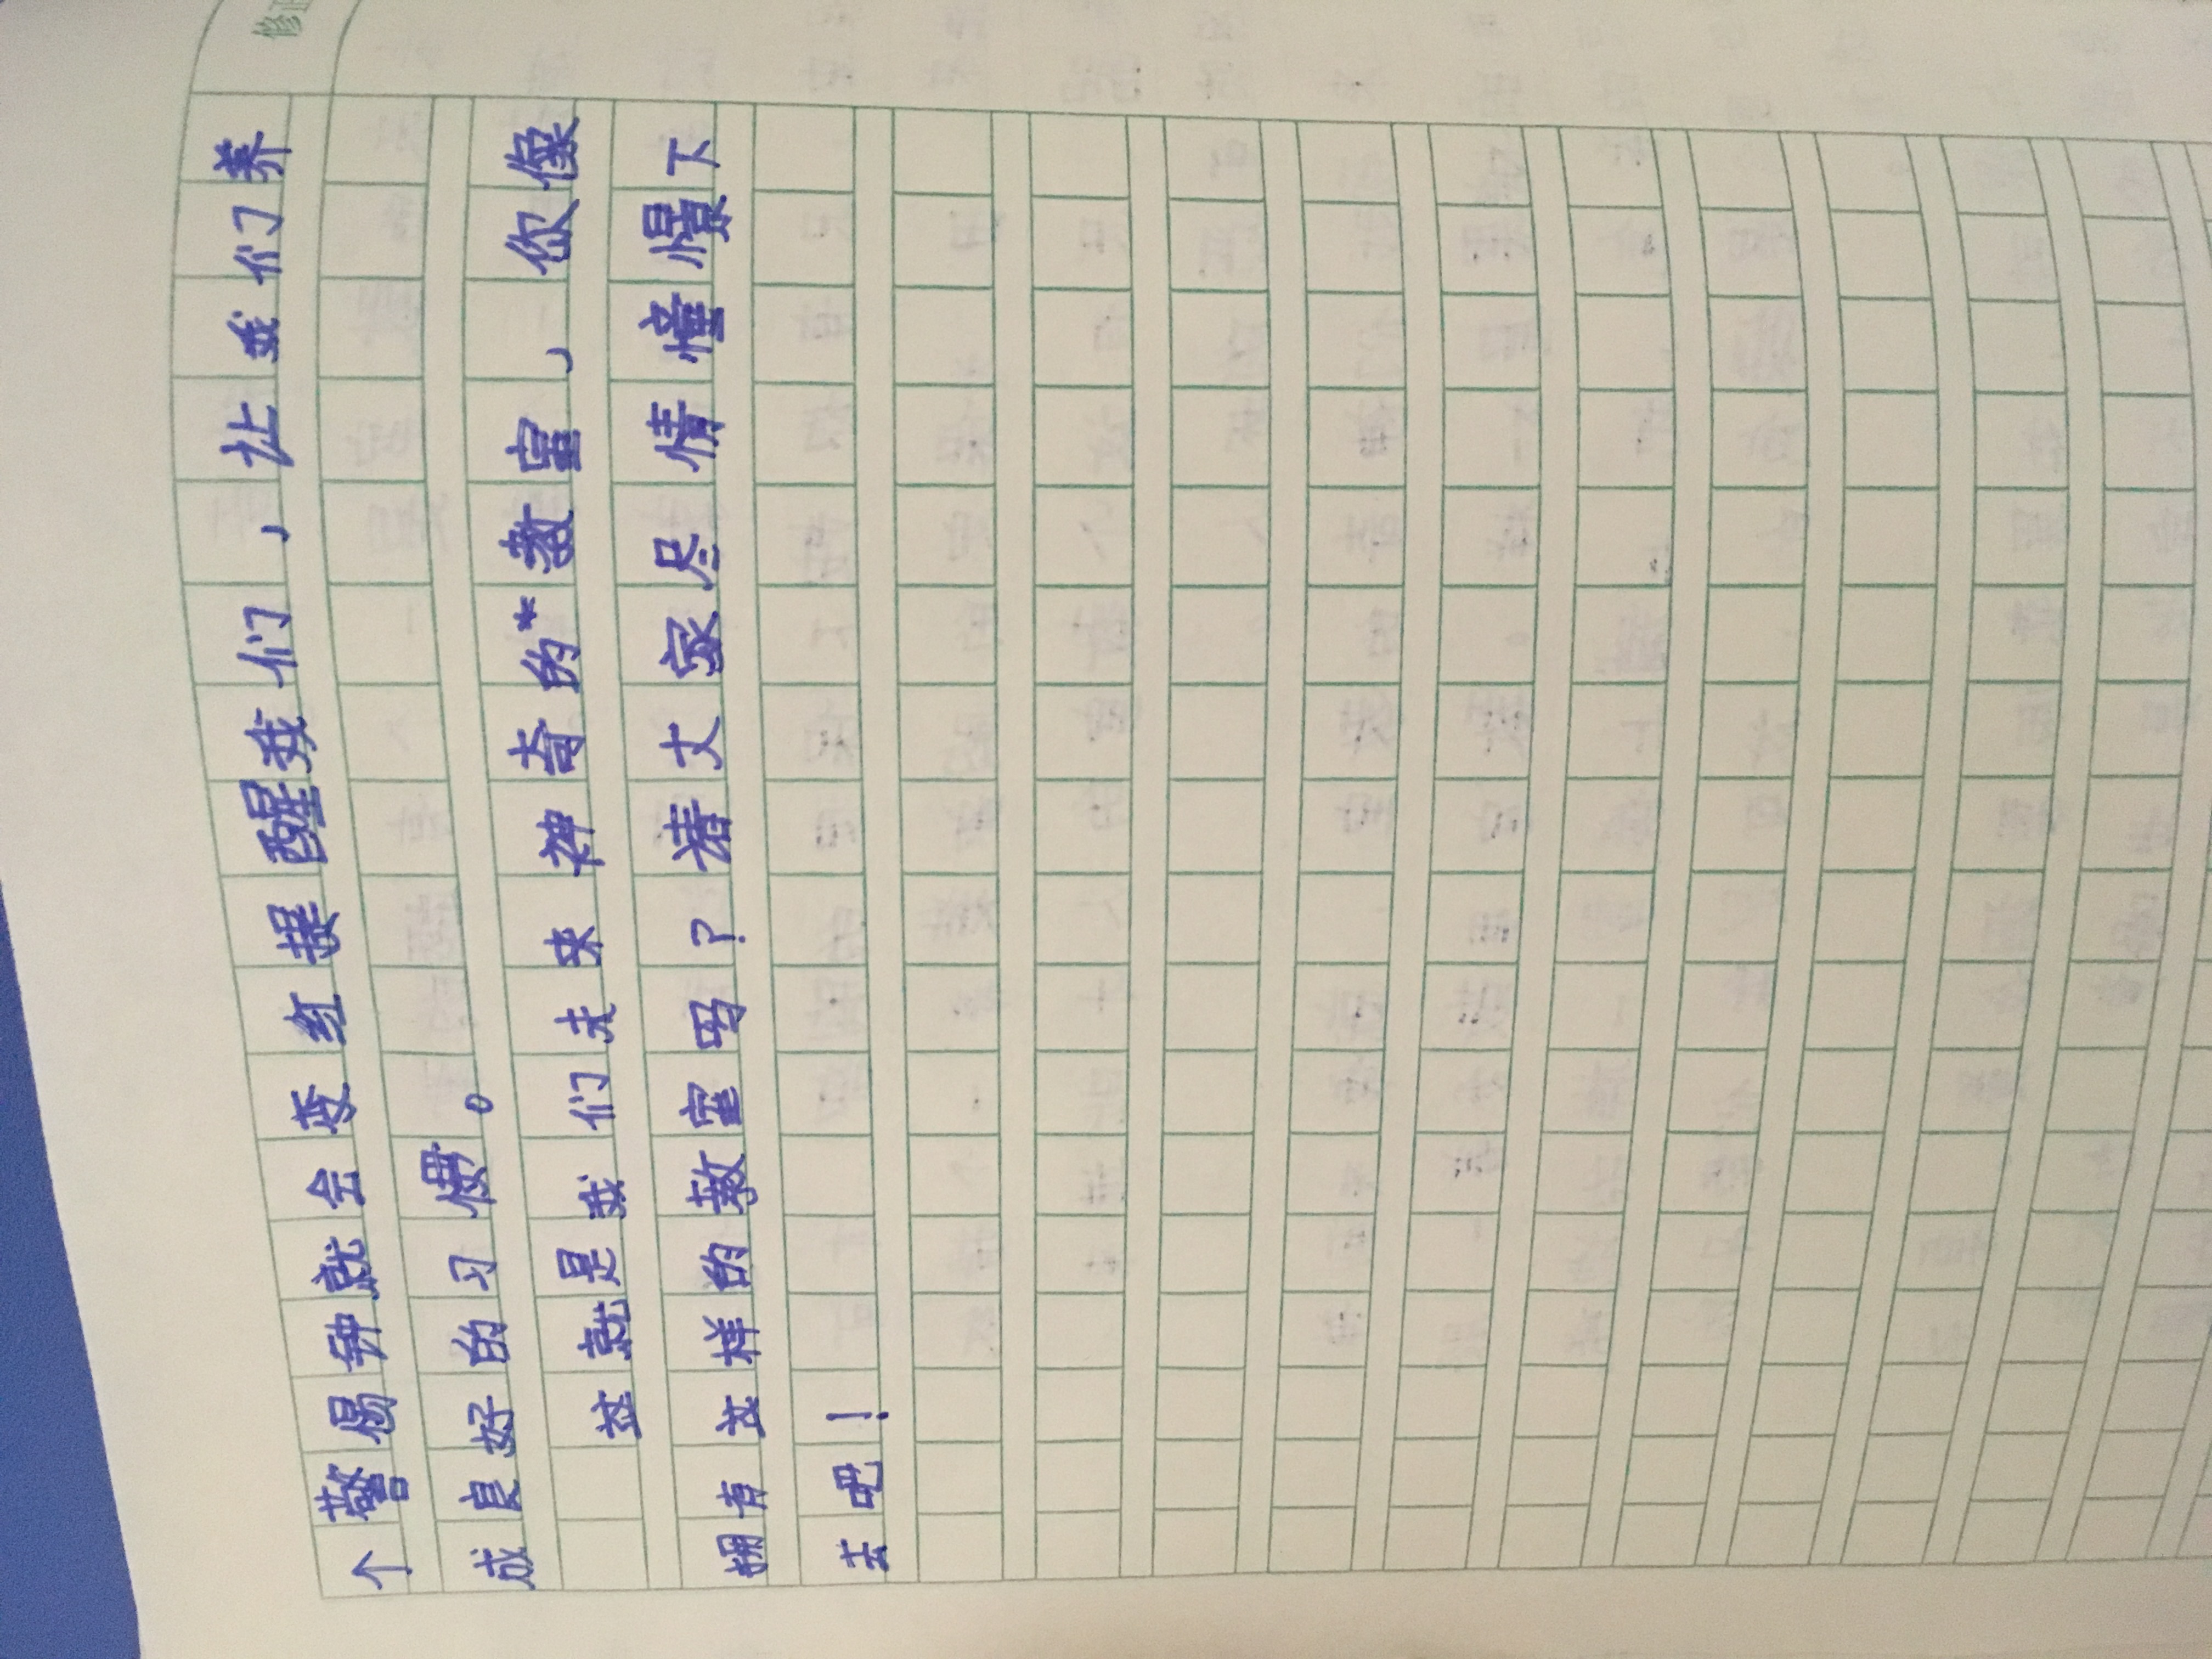 修
个警惕钟就会变红提醒我们，让我们养
成良好的习惯。
这就是我们未来神奇的*教室，你像
拥有这样的教室吗？请大家尽情憧憬下
去吧！